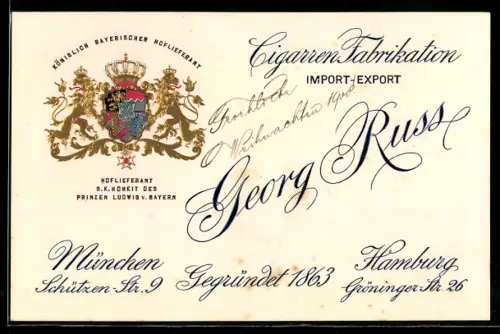 KÖNIGLICH BAYERISCHER HOFLIEFERANT
HOFLIEFERANT
S.K. HOHEIT DES
PRINZEN LUDWIG v. BAYERN
Cigarren Fabrikation
IMPORT-EXPORT
Weihnachten
Georg Russ
München
Schützen-Str. 9
Gegründet 1863
Hamburg
Gröninger Str. 26